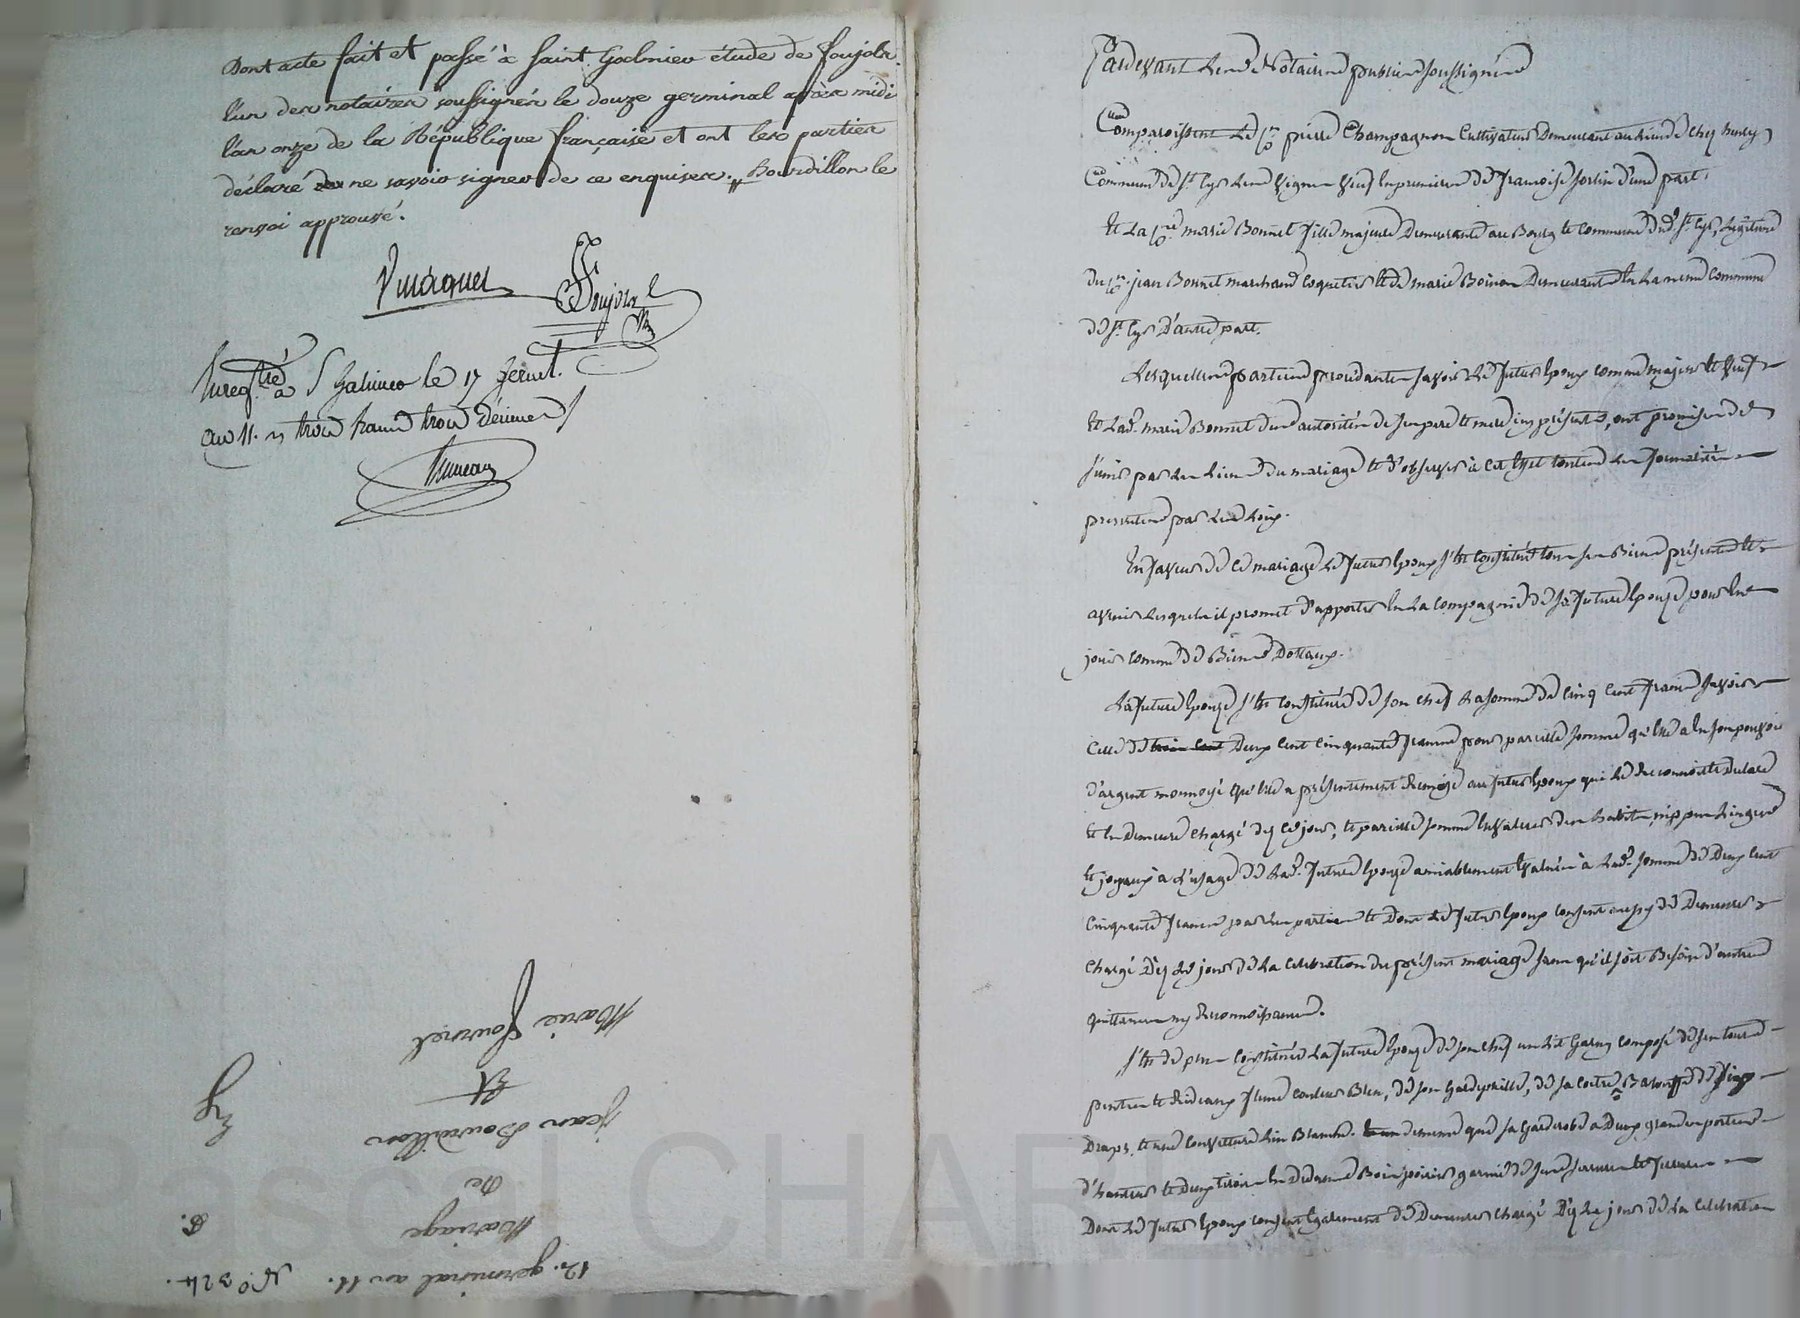 Dont acte fait et passé à Saint Galmier étude de Foujols
l'un des notaires soussignés le douze germinal après midi
l'an onze de la République française et ont les parties
déclaré ne savoir signer de ce enquises. Bourdillon le
renvoi approuvé.
Foujols
Enregtré à St Galmier le 17 germl.
an 11. trois francs trois décimes
Pardevant les Notaires publics soussignés
Comparoissent le Cen pierre Champagnon Cultivateur Demeurant au lieu de chez
Commune de St Cyr les Vignes Veuf en premieres de françoise fortin d'une part.
Et la Cne marie Bonnet fille majeure Demeurante au Bourg et commune dud. St Cyr, Legitime
du Cen jean Bonnet marchand Coquetier et de marie Boinon Demeurants En la meme commune
de St Cyr D'autre part.
Lesquelles parties procédantes savoir le futur Epoux comme majeur et veuf
Et lad. marie Bonnet de l'autorité de ses pere et mere icy présents, ont promis de
s'unir par les liens du mariage et d'observer à cet effet toutes les formalités
prescrites par les loix.
En faveur de ce mariage le futur Epoux s'est constitué tous ses Biens présents et
avenir lesquels il promet d'apporter En la compagnie de sa future Epouse pour En
jouir comme de Biens Dotaux.
La future Epouse s'est constituée de son chef la somme de cinq cent francs savoir
celle de trois cent Deux cent cinquante francs pour pareille somme qu'elle a En son pouvoir
d'argent monnoyé qu'elle a présentement Remise au futur Epoux qui le Reconnoit et declare
Et En Demeure chargé dès ce jour, et pareille somme En valeur des habits, nippes Linges
Et joyaux à l'usage de lad. future Epouse amiablement Evalués à lad. somme de Deux cent
cinquante francs par les parties et Dont le futur Epoux consent aussy de Demeurer
chargé Dès le jour de la celebration du présent mariage sans qu'il soit Besoin d'autres
quittances ny Reconnoissances.
S'est de plus constituée la future Epouse de son chef un Lit Garny composé de son tour de
pentes et Rideaux couleur Bleu, de son Gardepaille, de sa coitre, Bassouffe de six
Draps, et une couverture Laine Blanche. de meme que sa Garderobe a Deux grandes portes
d'hauteur et Deux tiroirs En Dedans Bois poirier garnie de ses serrures et ferrures
Dont le futur Epoux consent Egalement de Demeurer chargé Dès le jour de la celebration
12. germinal an 11. No. 324.
Mariage
de
Jean Bourdillon
Et
Marie
Pascal CHAR